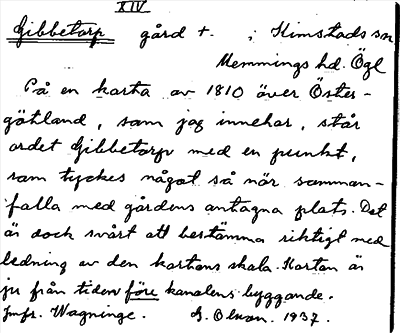 XIV
Gibbetorp gård +. ; Kimstads sn
Memmings hd. Ögl
På en karta av 1810 över Öster-
götland, som jag innehar, står
ordet Gibbetorp med en punkt,
som tyckes något så när samman-
falla med gårdens antagna plats. Det
är dock svårt att bestämma riktigt med
ledning av den kartans skala. Kartan är
ju från tiden före kanalens byggande.
Jmfr. Wagninge. G. Olson. 1937.